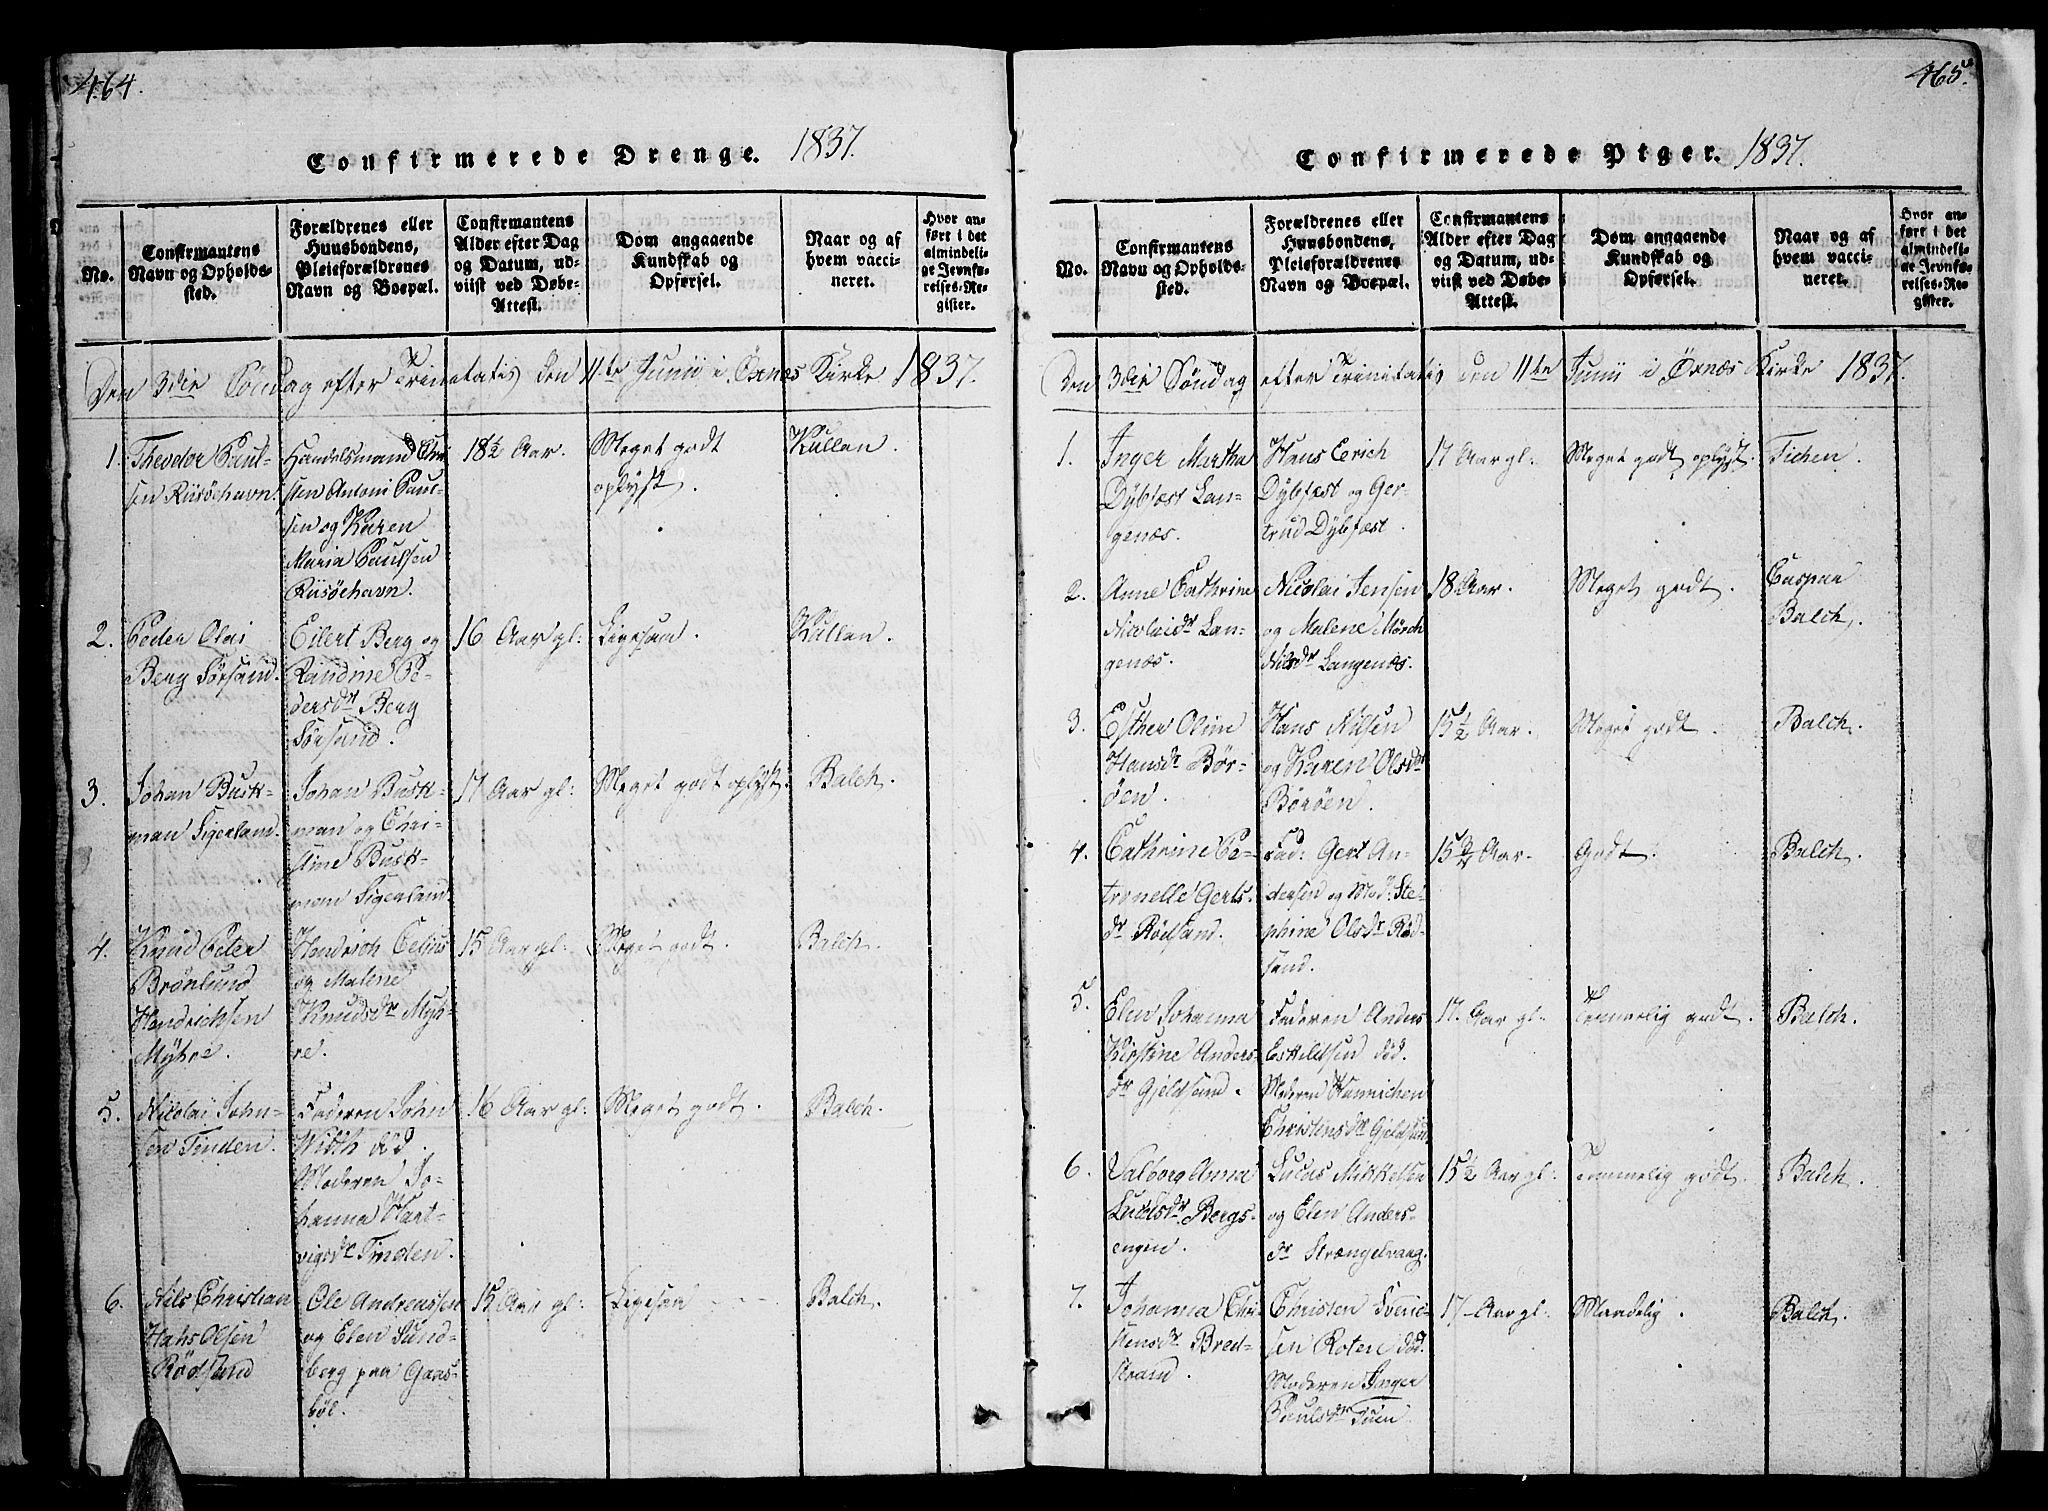 464.
Confirmerede Drenge. 1837.
No.
Confirmantens
Navn og Opholds-
sted.
Forældrenes eller
Huusbondens,
Pleieforældrenes
Navn og Boepæl.
Confirmantens
Alder efter Dag
og Datum, ud-
viist ved Døbe-
Attest.
Dom angaaende
Kundskab og
Opførsel.
Naar og af
hvem vacci-
neret.
Hvor an-
ført i det
almindeli-
ge Jevnfø-
relses-Re-
gister.
Den 3die Söndag efter Trinitatis den 11te Junii i Öxnæs Kirke 1837.
1.
Theodor Paul-
sen Risöehavn.
Handelsmand Chri-
sten Antoni Paul-
sen og Karen
Maria Paulsen
Risöehavn.
18½ Aar.
Meget godt
oplyst.
Kullan.
2.
Peder Olai
Berg Sörsand.
Eilert Berg og
Randine Pe-
dersdr Berg
Sörsand.
16 Aar gl:
Ligesaa.
Kullan.
3.
Johan Busk-
man Sigerland.
Johan Busk-
man og Chri-
Aine Busk-
man Sigerland.
17 Aar gl:
Meget godt oplyst.
Balch.
4.
Knud Peter
Brönlund
Hendrichsen
Myhre.
Hendrich Celius
og Malene
Knudsdr Myh-
re.
15 Aar gl:
Meget godt.
Balch.
5.
Nicolai John-
sen Tinden.
Faderen John
Witth död.
Moderen Jo-
hanna Hart-
vigsdr Tinden.
16 Aar gl:
Meget godt.
Balch.
6.
Nils Christian
Hans Olsen
Rödsand
Ole Andreassen
og Elen Sund-
berg paa Gaas-
böl.
15 Aar gl:
Ligesaa
Balch.
465.
Confirmerede Piger. 1837.
No.
Confirmantens
Navn og Opholds-
sted.
Forældrenes eller
Huusbondens,
Pleieforældrenes
Navn og Boepæl.
Confirmantens
Alder efter Dag
og Datum, ud-
viist ved Døbe-
Attest.
Dom angaaende
Kundskab og
Opførsel.
Naar og af
hvem vacci-
neret.
Hvor an-
ført i det
almindeli-
ge Jevnfø-
relses-Re-
gister.
Den 3die Söndag efter Trinitatis den 11te Junii i Öxnæs Kirke 1837.
1.
Inger Martha
Dybfæst Lan-
genæs.
Hans Erich
Dybfæst og Ger-
trud Dybfest.
17 Aar gl:
Meget godt oplyst.
Tichen.
2.
Anne Cathrine
Nicolaidr Lan-
genæs.
Nicolai Jensen
og Malene Mörch
Nilsdr Langenæs.
18 Aar.
Meget godt.
Caspaa
Balch.
3.
Esther Oline
Hansdr Bör-
öen.
Hans Nilsen
og Karen Olsdr
Böröen.
15½ Aar.
Meget godt.
Balch.
4.
Cathrine Pe-
tronelle Gerts-
dr Rödsand.
Fad: Gert An-
dersen og Mod: Ste-
phine Olsdr Röd-
sand.
15¾ Aar.
Godt.
Balch.
5.
Elen Johanna
Kirstine Anders-
dr Gjeldsund.
Faderen Anders
Eskildsen död.
Moderen Hannichen
Christensdr Gjeldsun
17. Aar gl:
Temmelig godt.
Balch.
6.
Valborg Anna
Lucasdr Bergs-
engen.
Lucas Mikkelsen
og Elen Anders-
dr Strængelvaag.
15½ Aar gl:
Temmelig godt
Balch.
7.
Johanna Chri-
stensdr Bred-
strand.
Christen
sen Roten död.
Moderen Inger
Paulsdr Tuen
17 Aar gl:
Maadelig.
Balch.